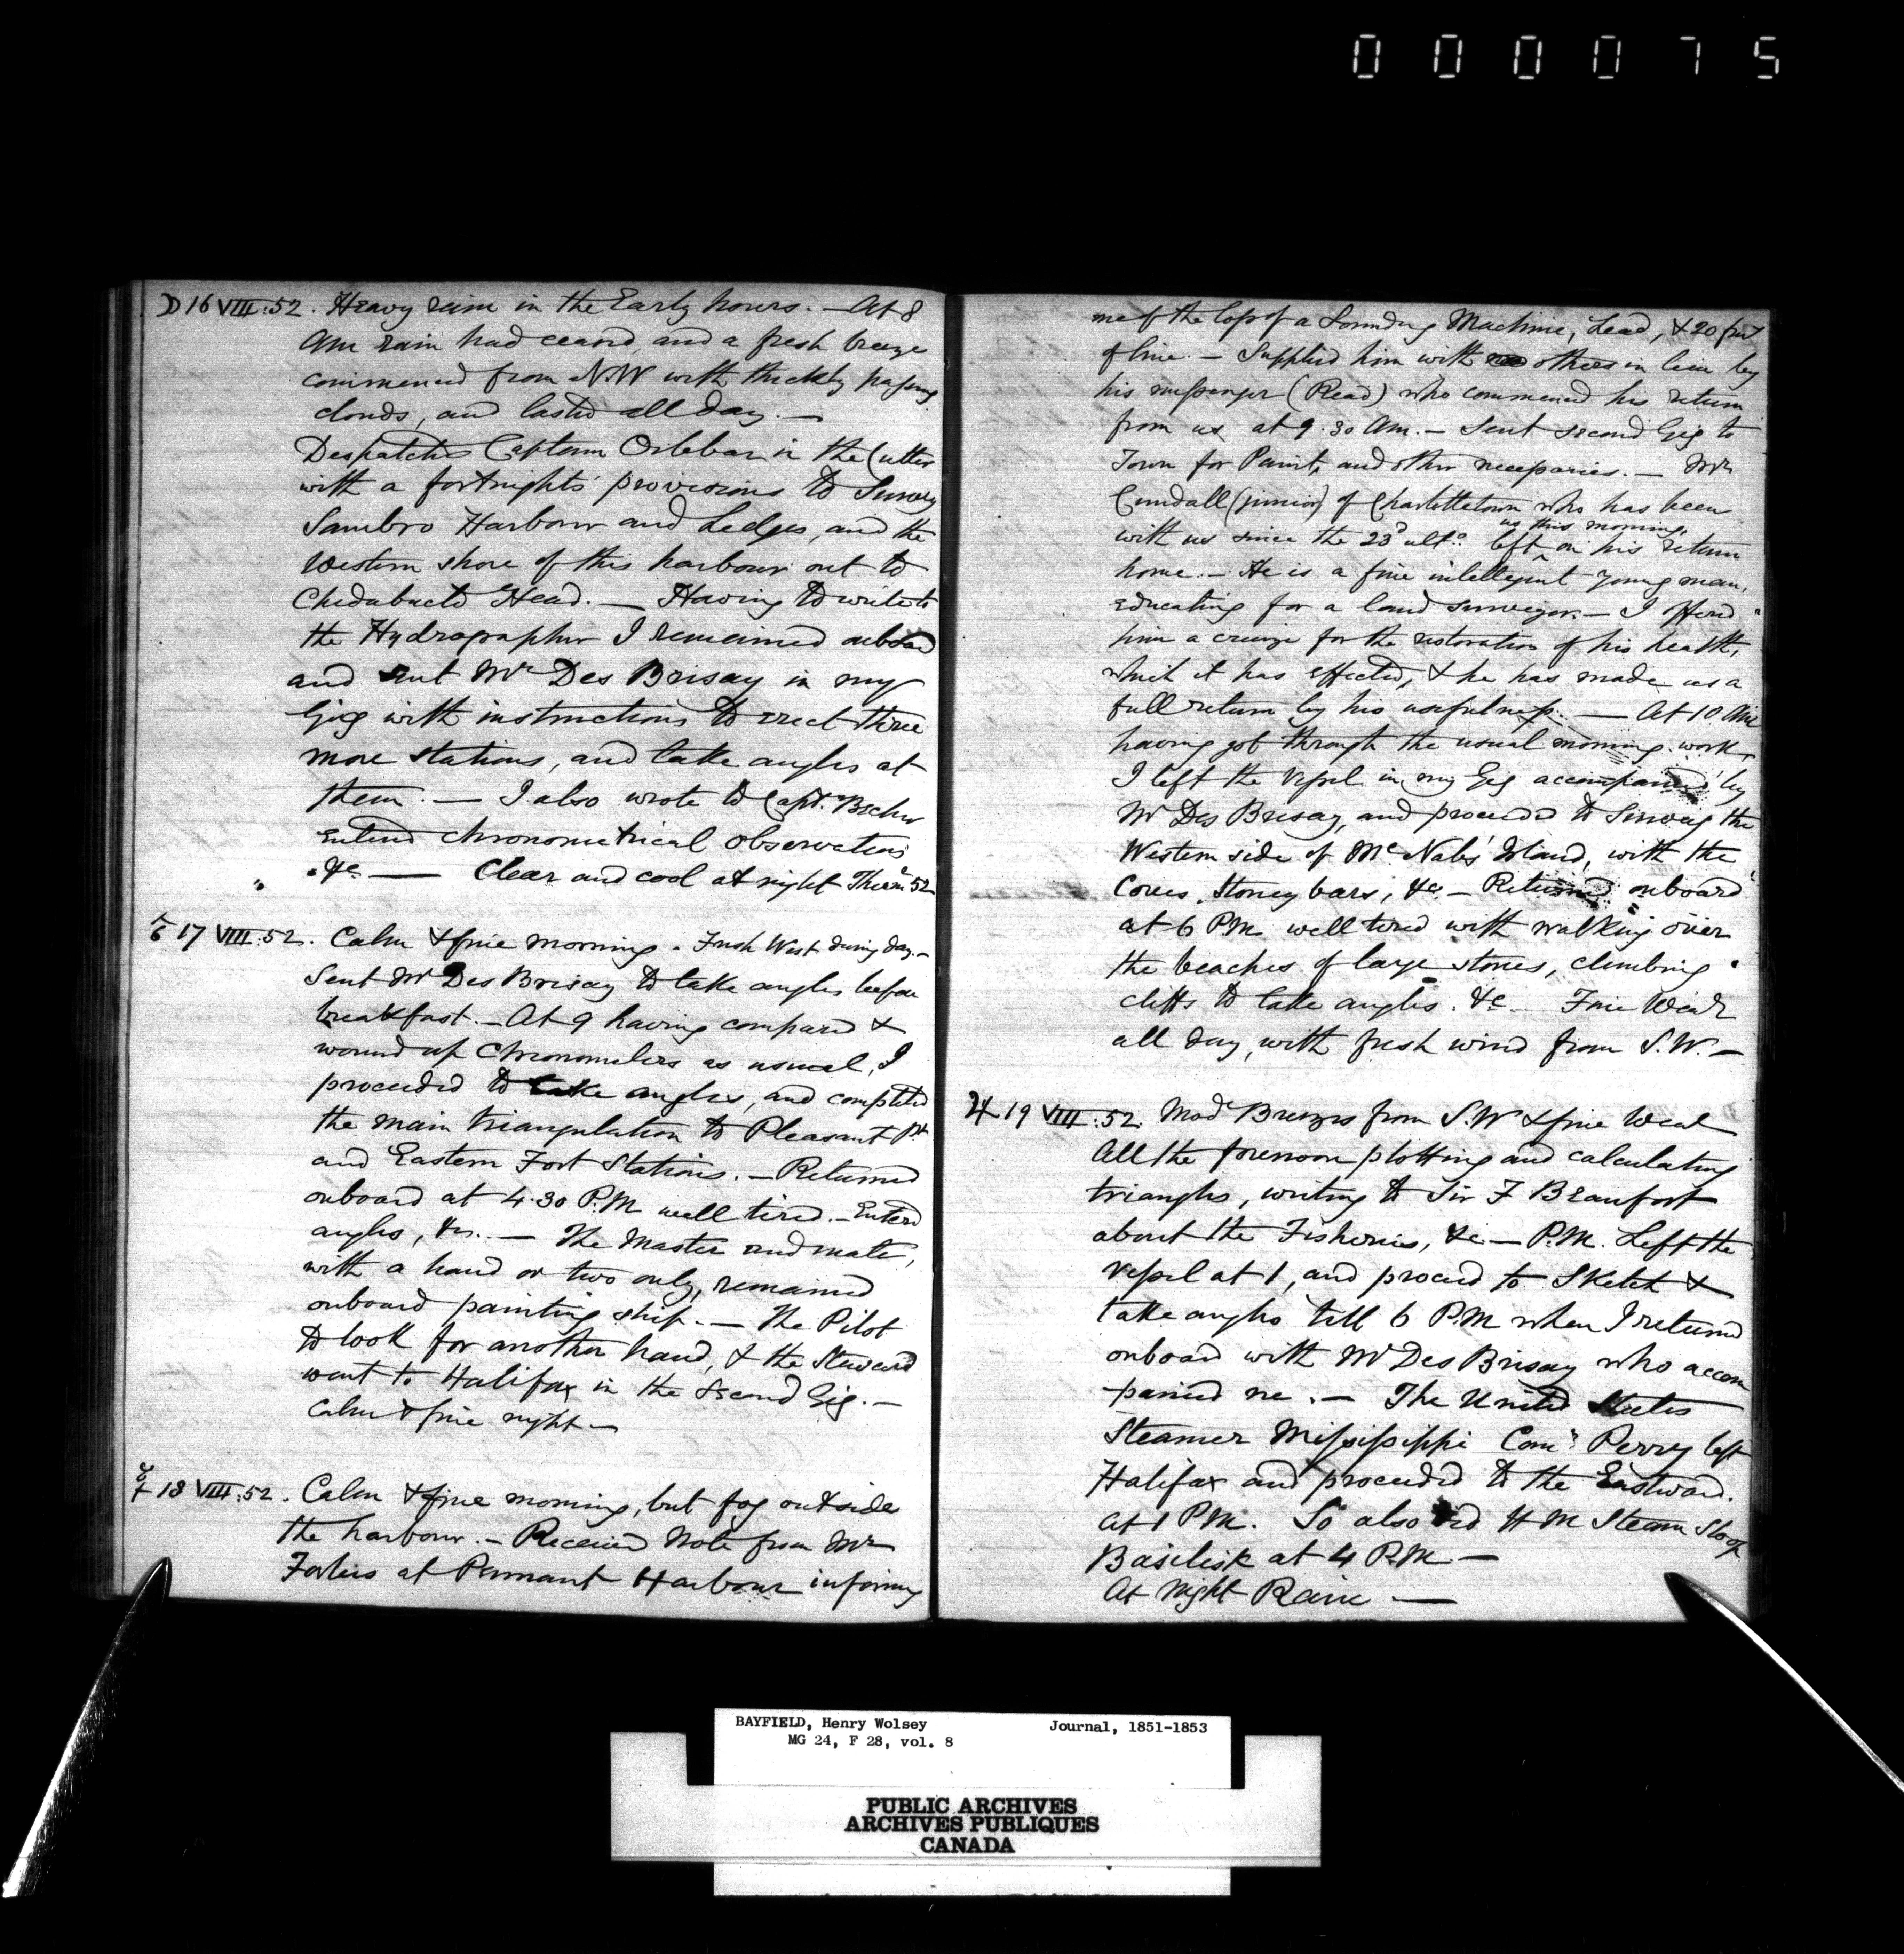 000075
☽ 16 VIII:52. Heavy rain in the Early hours. — At 8
Am rain had ceased, and a fresh breeze
commenced from N.W with thickly passing
clouds, and lasted all day. —
Despatched Captain Orlebar in the Cutter
with a fortnights' provisions to Survey
Sambro Harbour and Ledges, and the
Western shore of this harbour out to
Chedabucto Head. — Having to write to
the Hydrographer I remained onboard
and sent Mr Des Brisay in my
Gig with instructions to erect three
more stations, and take angles at
them. — I also wrote to Capt. Becher
Entered chronometrical observations
&c — Clear and cool at night Therm 52
♂ 17 VIII:52. Calm & fine morning. Fresh West during day. —
Sent Mr Des Brisay to take angles before
breakfast. — At 9 having compared &
wound up Chronometers as usual, I
proceeded to take angles, and completed
the main triangulation to Pleasant Pt
and Eastern Fort Stations. — Returned
onboard at 4.30 P.M well tired. — Entered
angles, &c. — The Master and mate,
with a hand or two only, remained
onboard painting ship. — The Pilot
to look for another hand, & the Steward
went to Halifax in the Second Gig. —
Calm & fine night —
☿ 18 VIII:52. Calm & fine morning, but fog outside
the harbour. — Received Note from Mr
Forbes at Pennant Harbour informing
me of the loss of a Sounding Machine, Lead, & 20 fms
of line. — Supplied him with others in lieu by
his messenger (Read) who commenced his return
from us at 9.30 Am. — Sent Second Gig to
Town for Paint, and other necessaries. — Mr
Cundall (junior) of Charlottetown who has been
us this morning,
with us since the 23d ulto. left ^ on his return
home. — He is a fine intelligent young man,
educating for a land surveyor. — I offered
him a cruize for the restoration of his health,
which it has effected, & he has made us a
full return by his usefulness. — At 10 Am
having got through the usual morning work,
I left the Vessel in my Gig accompanied by
Mr Des Brisay, and proceeded to Survey the
Western side of Mc Nabs' Island, with the
Coves, Stoney bars, &c — Returned onboard
at 6 PM well tired with walking over
the beaches of large stones, climbing
cliffs to take angles. &c — Fine Wear
all day, with fresh wind from S.W. —
♃ 19 VIII:52. Mod Breezes from S.W & fine Wear
All the forenoon plotting and calculating
triangles, writing to Sir F Beaufort
about the Fisheries, &c — P.M. Left the
Vessel at 1, and proceed to Sketch &
take angles till 6 P.M when I returned
onboard with Mr Des Brisay who accom
-panied me. — The United States
Steamer Mississippi Comr Perry left
Halifax and proceeded to the Eastward.
at 1 P.M. So also did H M Steam Sloop
Basilisk at 4 P.M —
At Night Rain —
BAYFIELD, Henry Wolsey Journal, 1851-1853
MG 24, F 28, vol. 8
PUBLIC ARCHIVES
ARCHIVES PUBLIQUES
CANADA